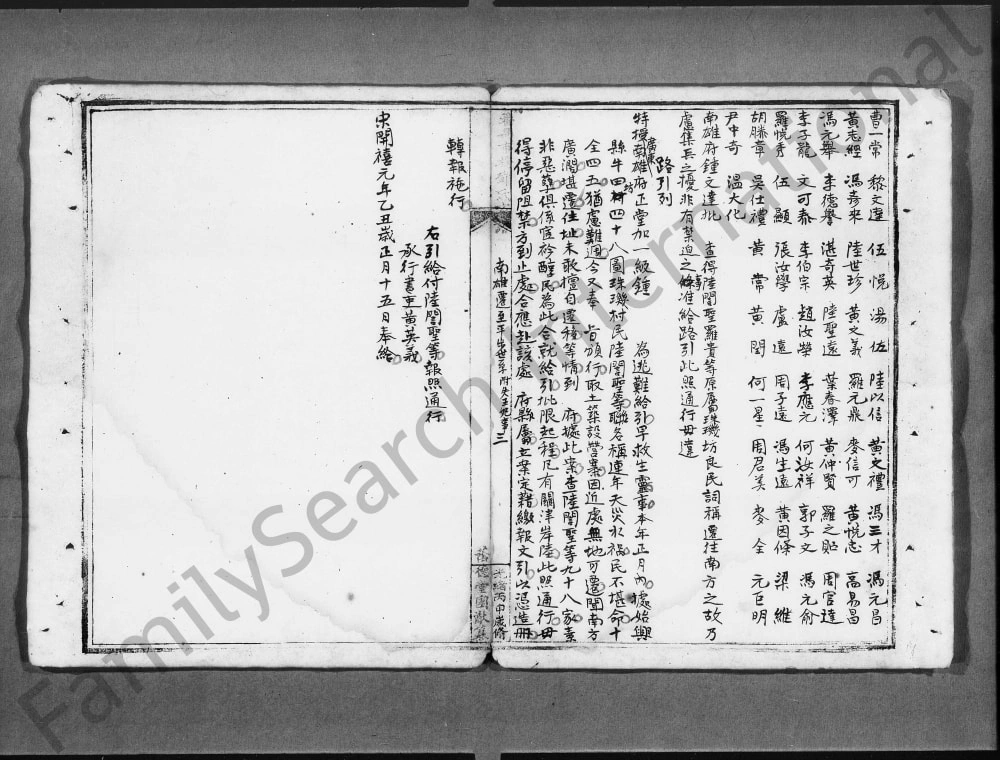 曹一常 黎文達 伍悅 湯伍 陸以信 黃文禮 馮三才 馮元昌
黃志經 馮彥來 陸世珍 黃文義 羅元鼎 麥信可 黃悅志 高易昌
馮元舉 李德譽 湛奇英 陸聖遠 葉春澤 黃仲賢 羅之貽 周官達
李子龍 文可泰 李伯宗 趙汝榮 李應元 何汝祥 郭子文 馮元俞
羅悅秀 伍顯 張汝學 盧遠 周子遠 馮生遠 黃因條 梁維
胡勝章 吳仕禮 黃常 黃閏 何一星 周君美 麥全 元巨明
尹中奇 溫大化
南雄府鍾文達批 查得陸誾聖羅貴等原屬珠璣坊良民詞稱遷徃南方之故乃
慮集兵之擾非有禁迫之條准給路引此照通行毋違
路引列
特授廣東南雄府正堂加一級鍾 為逃難給引早救生靈事本年正月內據始興
縣牛田坊四十八圖珠璣村民陸誾聖等聯名稱連年天災水禍民不堪命十
全四五猶慮難週今又奉 旨頒行取土築設營寨因近處無地可遷聞南方
廣濶堪遷住址未敢擅自遷移等情到 府據此案查陸誾聖等九十八家素
非惡孽俱係宦衿醇民為此合就給引批限起程凡有關津岸陸此照通行毋
得停留阻禁方到止處合應赴該處 府縣屬立案定籍繳報文引以憑造冊
南雄遷至平 三
光緒丙申歲修
轉報施行
右引給付陸誾聖等報照通行
承行書吏黃英義
宋開禧元年乙丑歲正月十五日奉給
FamilySearch International